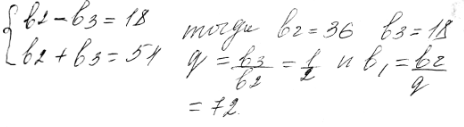 { b2 - b3 = 18
b2 + b3 = 54
тогда b2 = 36 b3 = 18
q = b3/b2 = 1/2 и b1 = b2/q
= 72.